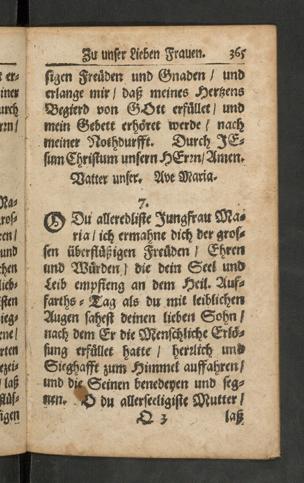 Zu unser Lieben Frauen. 365
sigen Freüden und Gnaden / und
erlange mir / daß meines Hertzens
Begierd von GOtt erfüllet / und
mein Gebett erhöret werde / nach
meiner Nothdurfft. Durch JE-
sum Christum unsern HErrn / Amen.
Vatter unser. Ave Maria.
7.
O Du alleredliste Jungfrau Ma-
ria / ich ermahne dich der gros-
sen überflüßigen Freüden / Ehren
und Würden / die dein Seel und
Leib empfieng an dem Heil. Auf-
farths-Tag als du mit leiblichen
Augen sahest deinen lieben Sohn /
nach dem Er die Menschliche Erlö-
sung erfüllet hatte / herrlich und
Sieghafft zum Himmel auffahren /
und die Seinen benedeyen und seg-
nen. O du allerseeligiste Mutter /
Q 3 laß